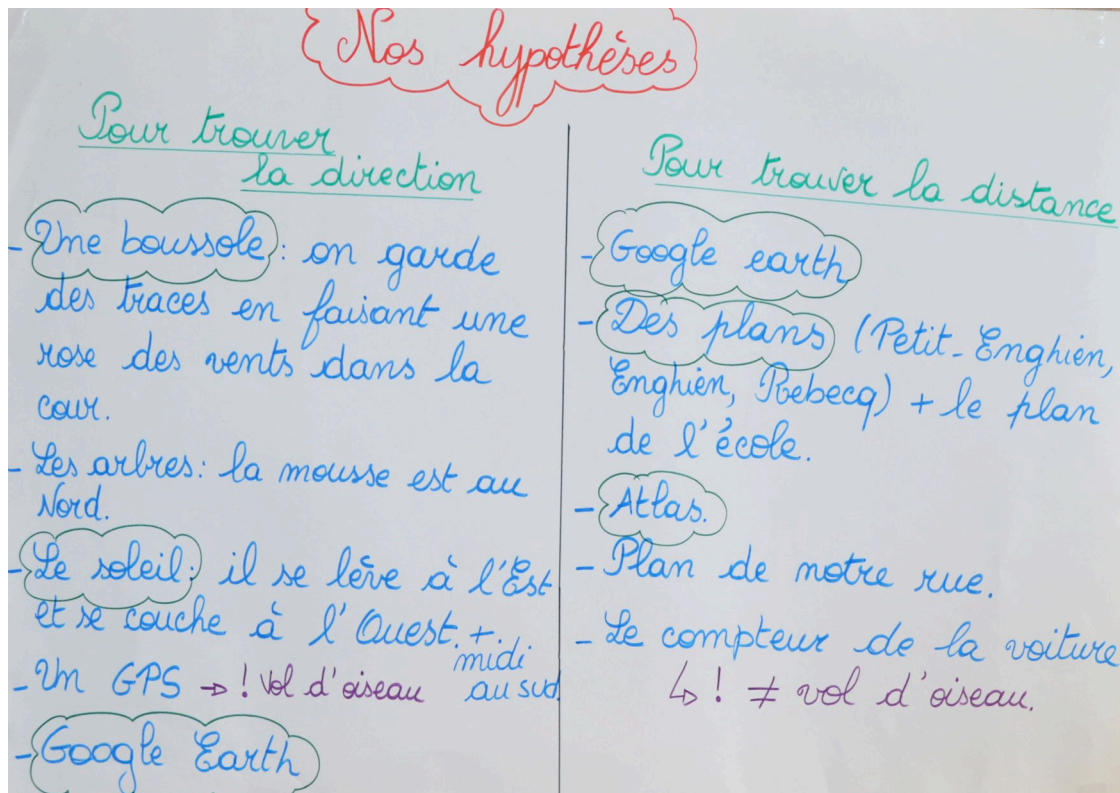 Nos hypothèses
Pour trouver
la direction
- Une boussole : on garde
des traces en faisant une
rose des vents dans la
cour.
- Les arbres : la mousse est au
Nord.
- Le soleil : il se lève à l'Est
et se couche à l'Ouest. + midi
au sud.
- Un GPS → ! Vol d'oiseau
- Google Earth
Pour trouver la distance
- Google earth
- Des plans (Petit-Enghien,
Enghien, Rebecq) + le plan
de l'école.
- Atlas.
- Plan de notre rue.
- Le compteur de la voiture
↳ ! ≠ vol d'oiseau.